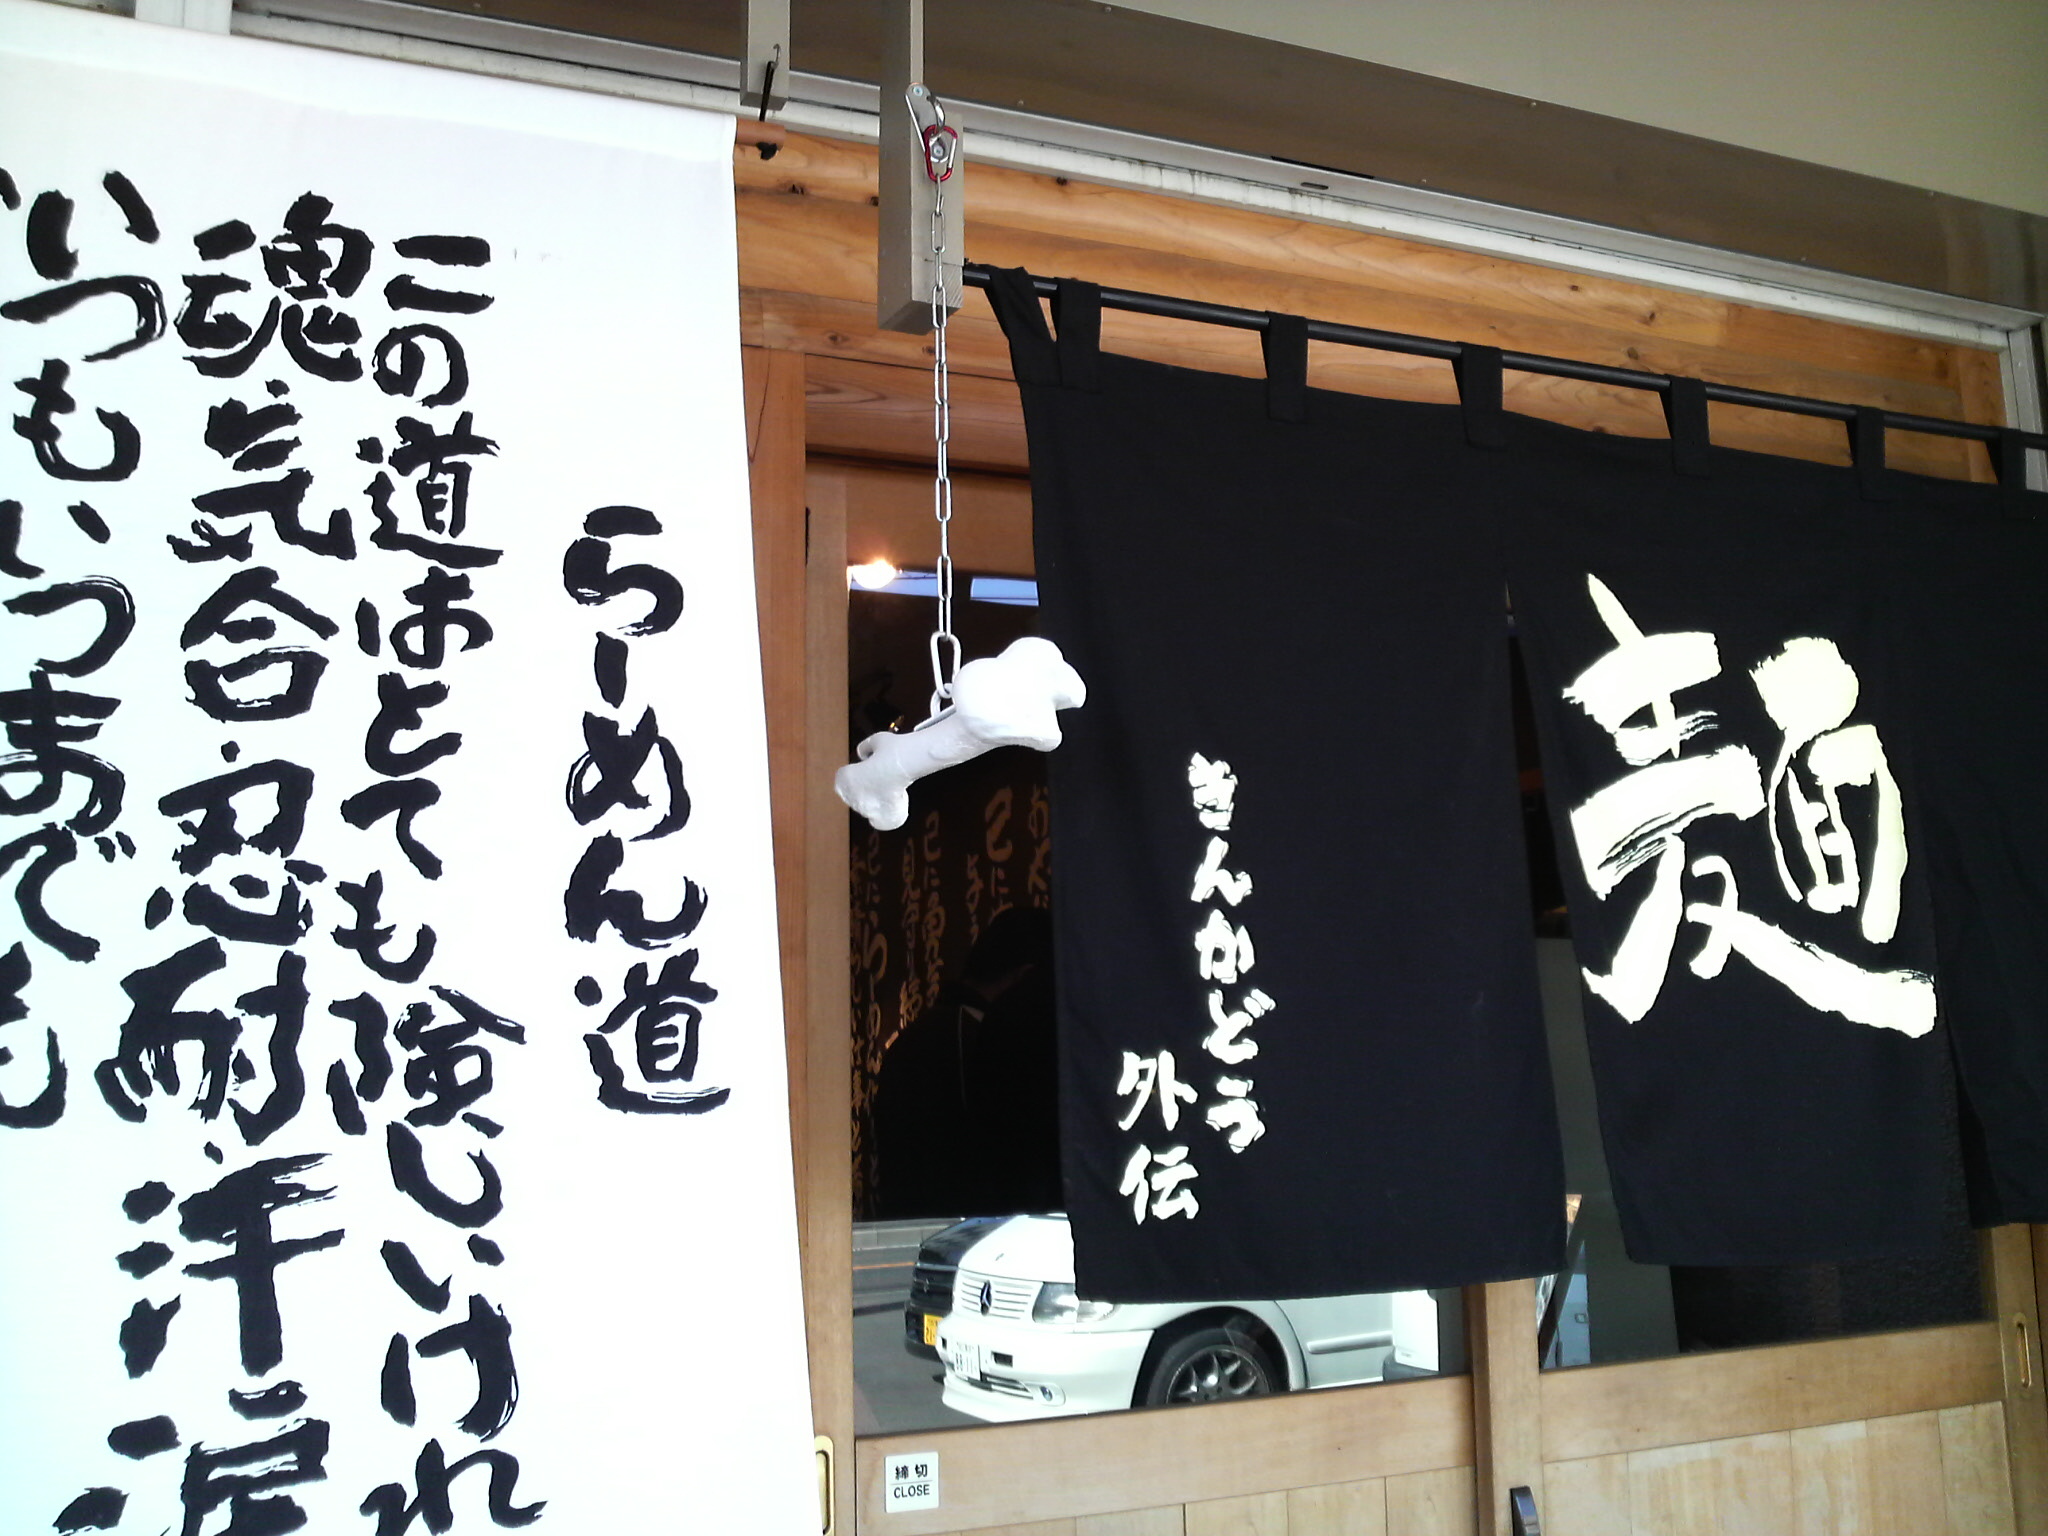 らーめん道
この道はとても険しいけれ
魂・気合・忍耐・汗・涙
いつもいつまでも
麺
きんかどう
外伝
締切
CLOSE